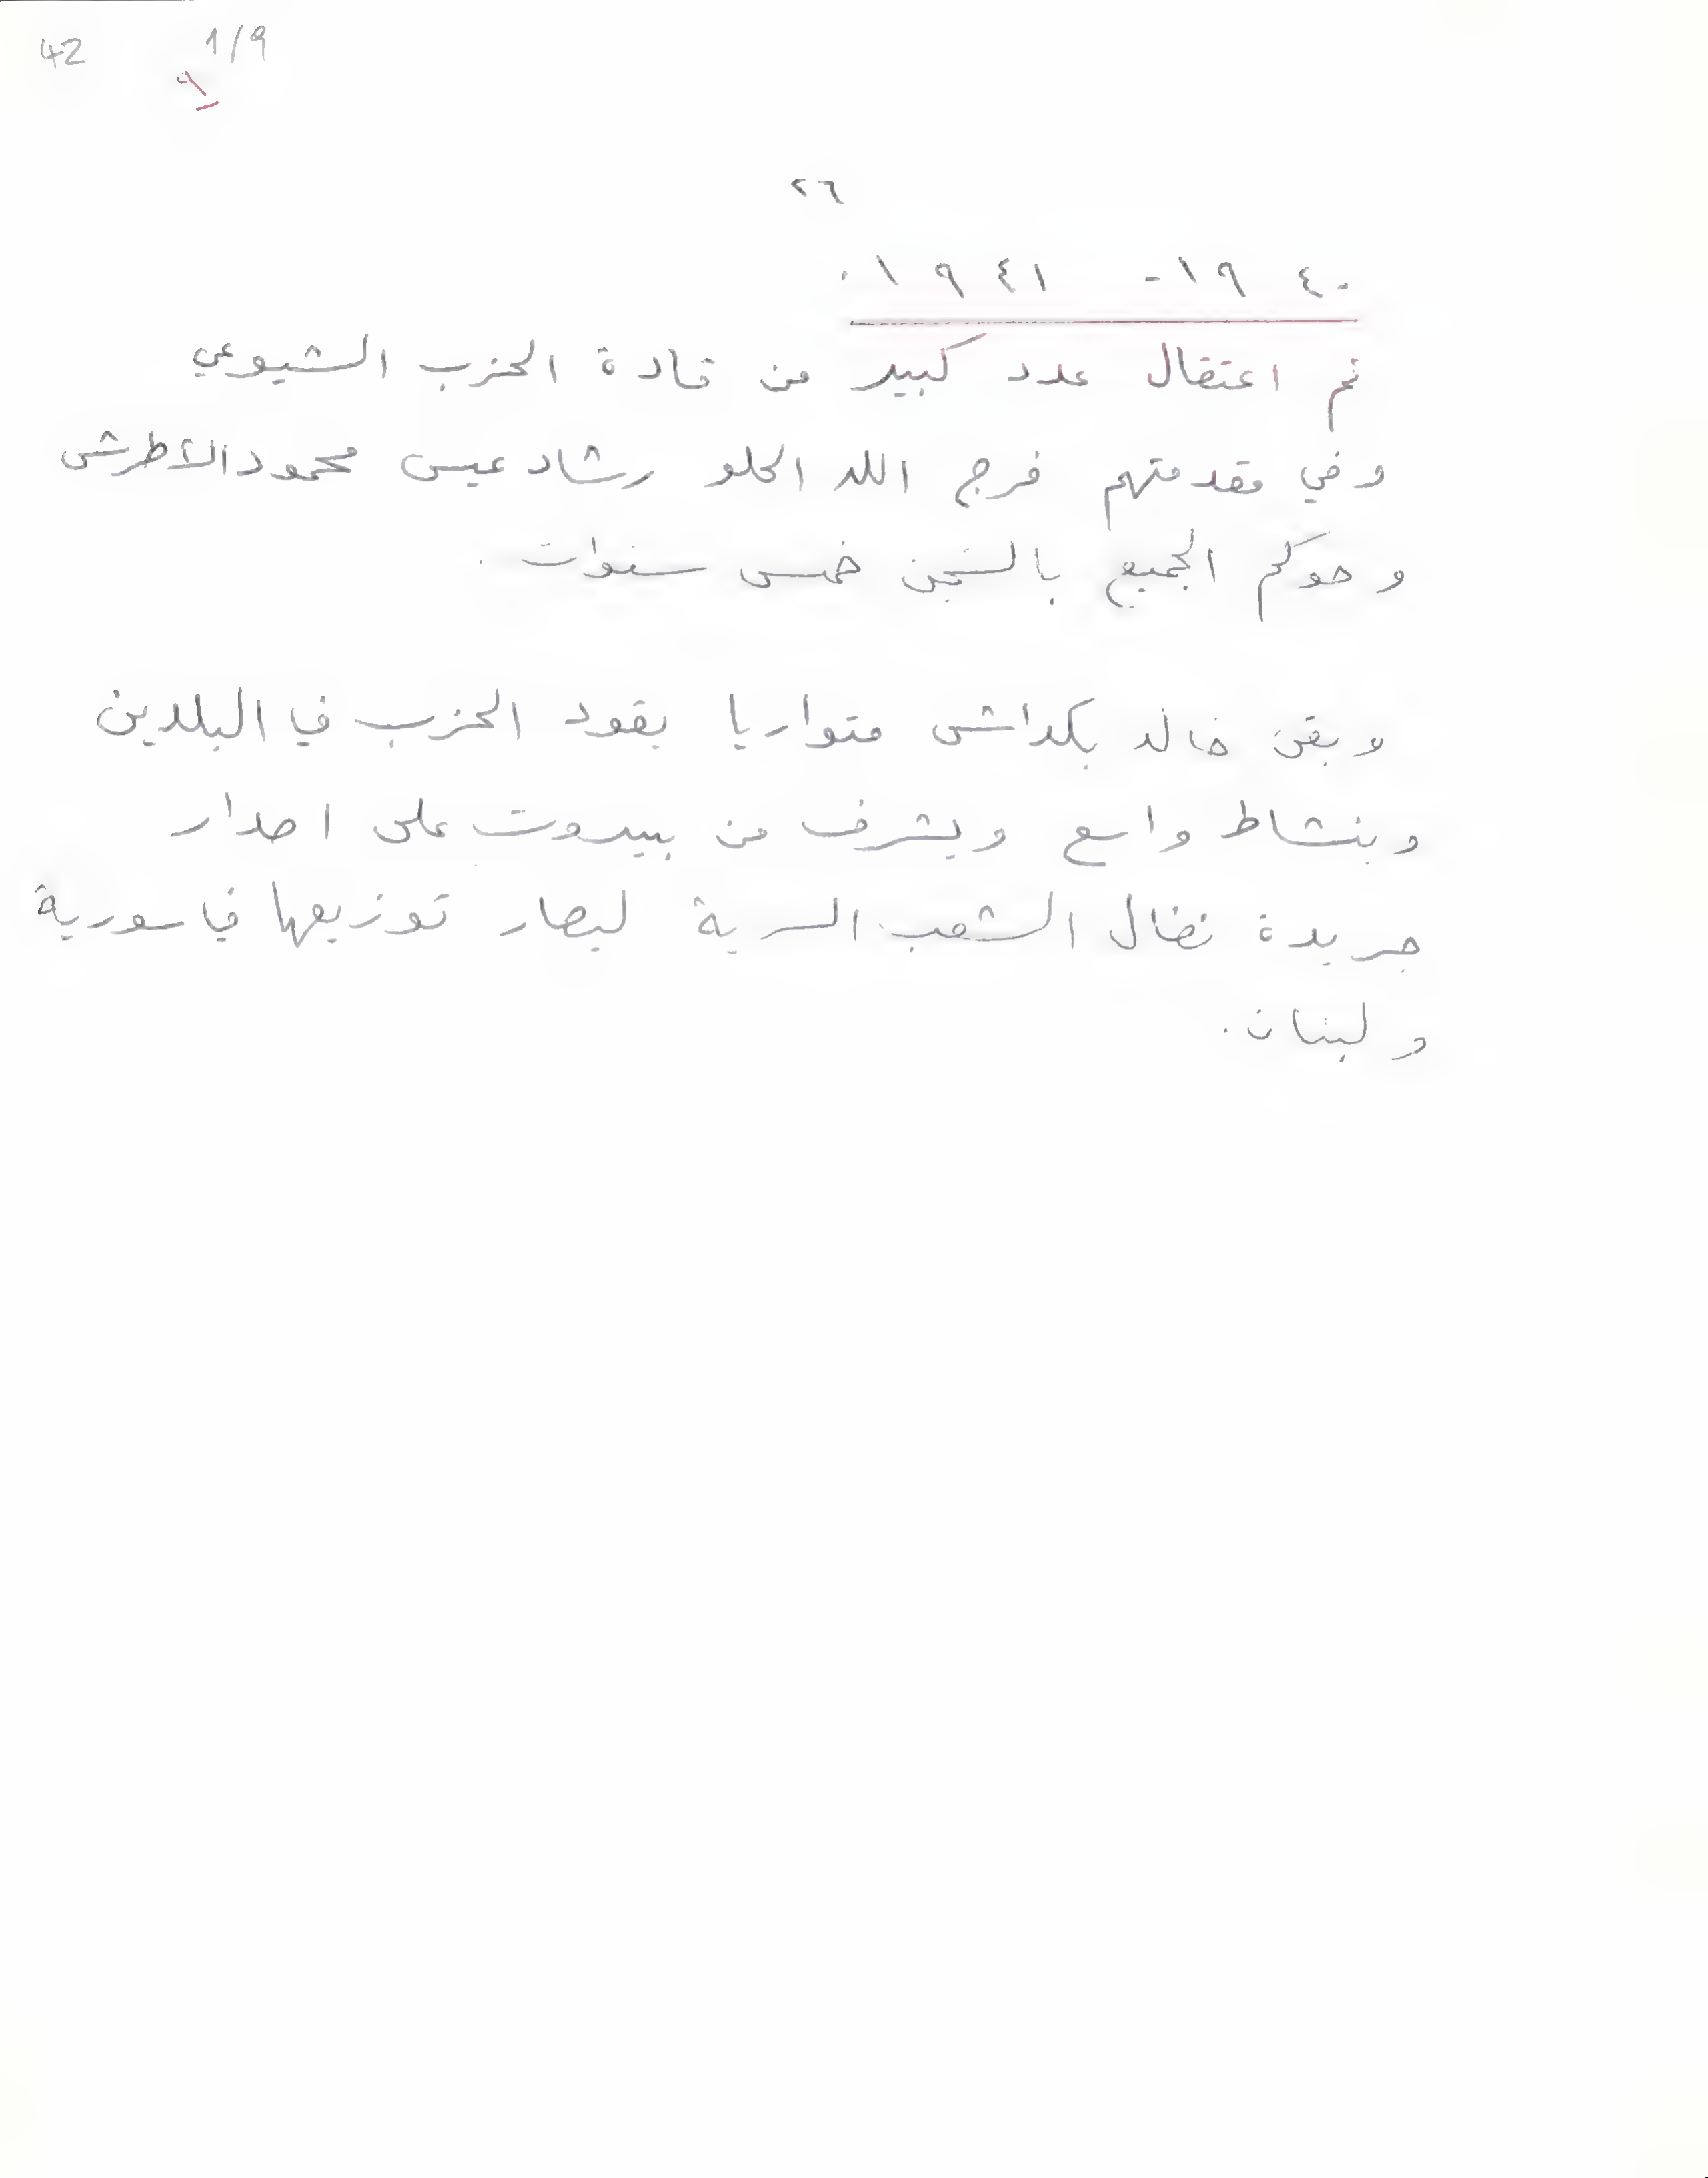 42
1/9
٩
٢٦
١٩٤٠ - ١٩٤١.
تم اعتقال عدد كبير من قادة الحزب الشيوعي
وفي مقدمتهم فرج الله الحلو رشاد عيسى محمود الاطرش
وحوكم الجميع بالسجن خمس سنوات.
وبقى خالد بكداش متواريا يقود الحزب في البلدين
وبنشاط واسع ويشرف من بيروت على اصدار
جريدة نضال الشعب السرية ليصار توزيعها في سورية
ولبنان.